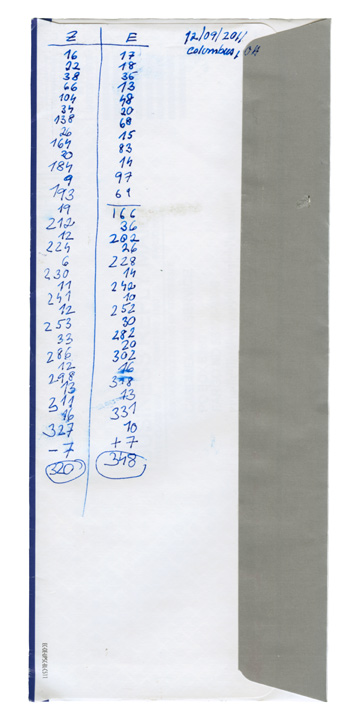 12/09/2011
Columbus, OH
Z
16
22
38
66
104
34
138
26
164
20
184
9
193
19
212
12
224
6
230
11
241
12
253
33
286
12
298
13
311
16
327
- 7
320
E
17
18
35
13
48
20
68
15
83
14
97
69
166
36
202
26
228
14
242
10
252
30
282
20
302
16
318
13
331
10
+ 7
348